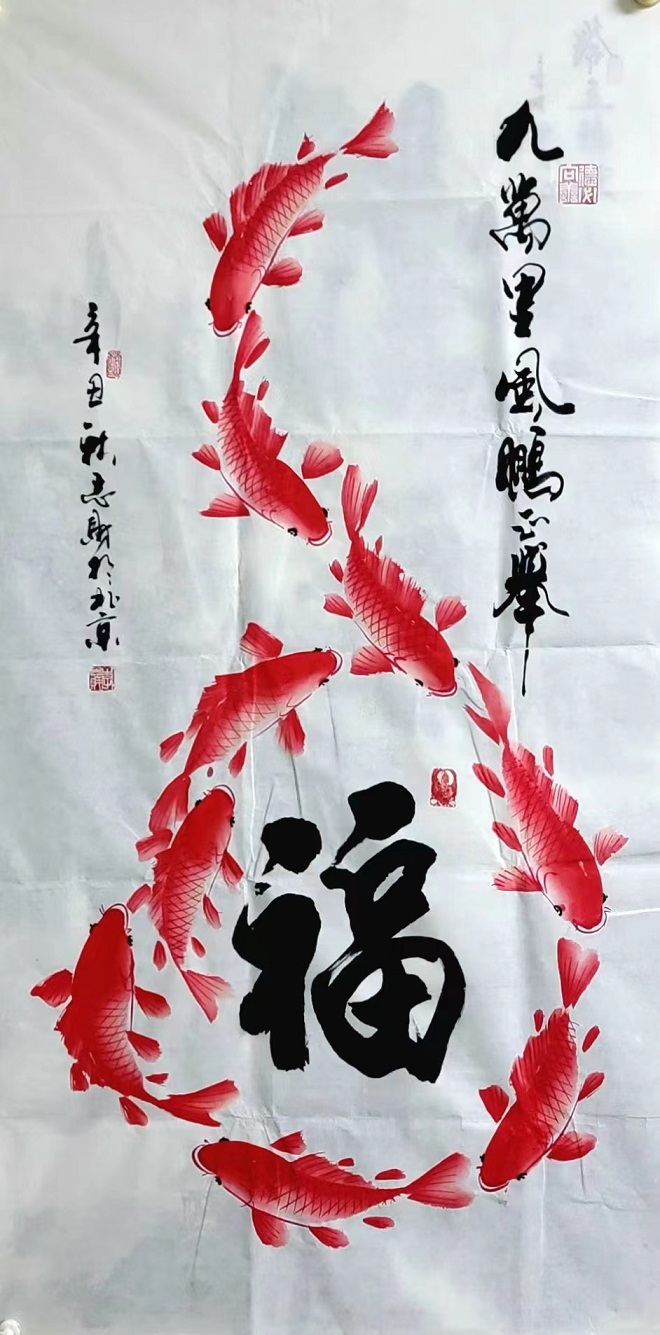 九萬里風鵬正舉
福
辛丑秋志財於北京